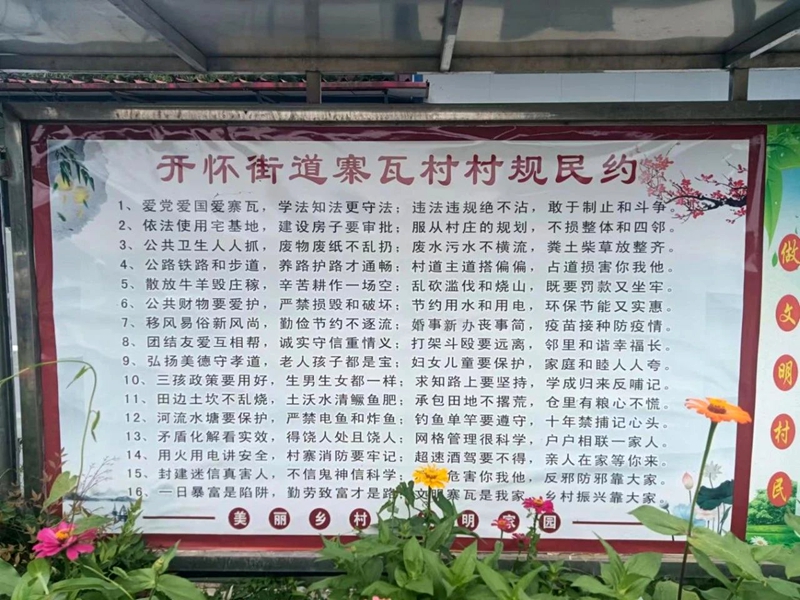 开怀街道寨瓦村村规民约
1、爱党爱国爱寨瓦，学法知法更守法；违法违规绝不沾，敢于制止和斗争。
2、依法使用宅基地，建设房子要审批；服从村庄的规划，不损整体和四邻。
3、公共卫生人人抓，废物废纸不乱扔；废水污水不横流，粪土柴草放整齐。
4、公路铁路和步道，养路护路才通畅；村道主道搭偏偏，占道损害你我他。
5、散放牛羊毁庄稼，辛苦耕作一场空；乱砍滥伐和烧山，既要罚款又坐牢。
6、公共财物要爱护，严禁损毁和破坏；节约用水和用电，环保节能又实惠。
7、移风易俗新风尚，勤俭节约不逐流；婚事新办丧事简，疫苗接种防疫情。
8、团结友爱互相帮，诚实守信重情义；打架斗殴要远离，邻里和谐幸福长。
9、弘扬美德守孝道，老人孩子都是宝；妇女儿童要保护，家庭和睦人人夸。
10、三孩政策要用好，生男生女都一样；求知路上要坚持，学成归来反哺记。
11、田边土坎不乱烧，土沃水清鳜鱼肥；承包田地不撂荒，仓里有粮心不慌。
12、河流水塘要保护，严禁电鱼和炸鱼；钓鱼单竿要遵守，十年禁捕记心头。
13、矛盾化解看实效，得饶人处且饶人；网格管理很科学，户户相联一家人。
14、用火用电讲安全，村寨消防要牢记；超速酒驾要不得，亲人在家等你来。
15、封建迷信真害人，不信鬼神信科学；危害你我他，反邪防邪靠大家。
16、一日暴富是陷阱，勤劳致富才是路；文明寨瓦是我家，乡村振兴靠大家
美丽乡村 明家园
做文明村民